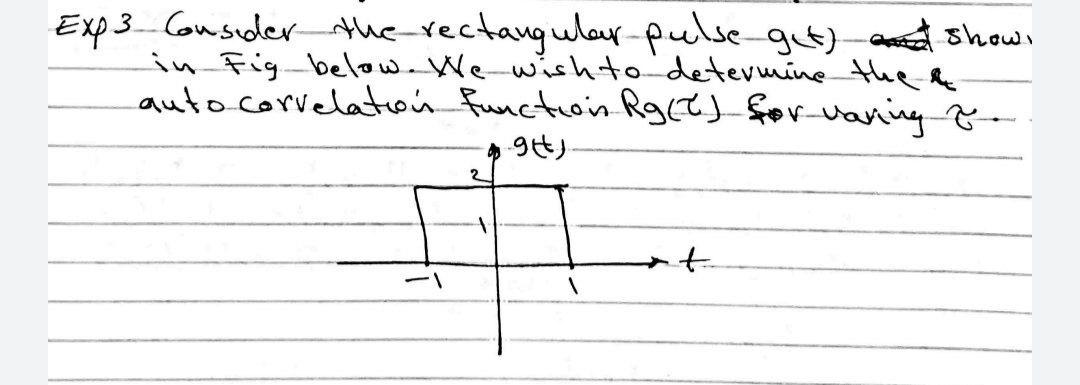 Exp 3 Consider the rectangular pulse g(t) and show
in Fig below. We wish to determine the
auto correlation function Rg(τ) for varing τ.
g(t)
2
1
t
-1
1